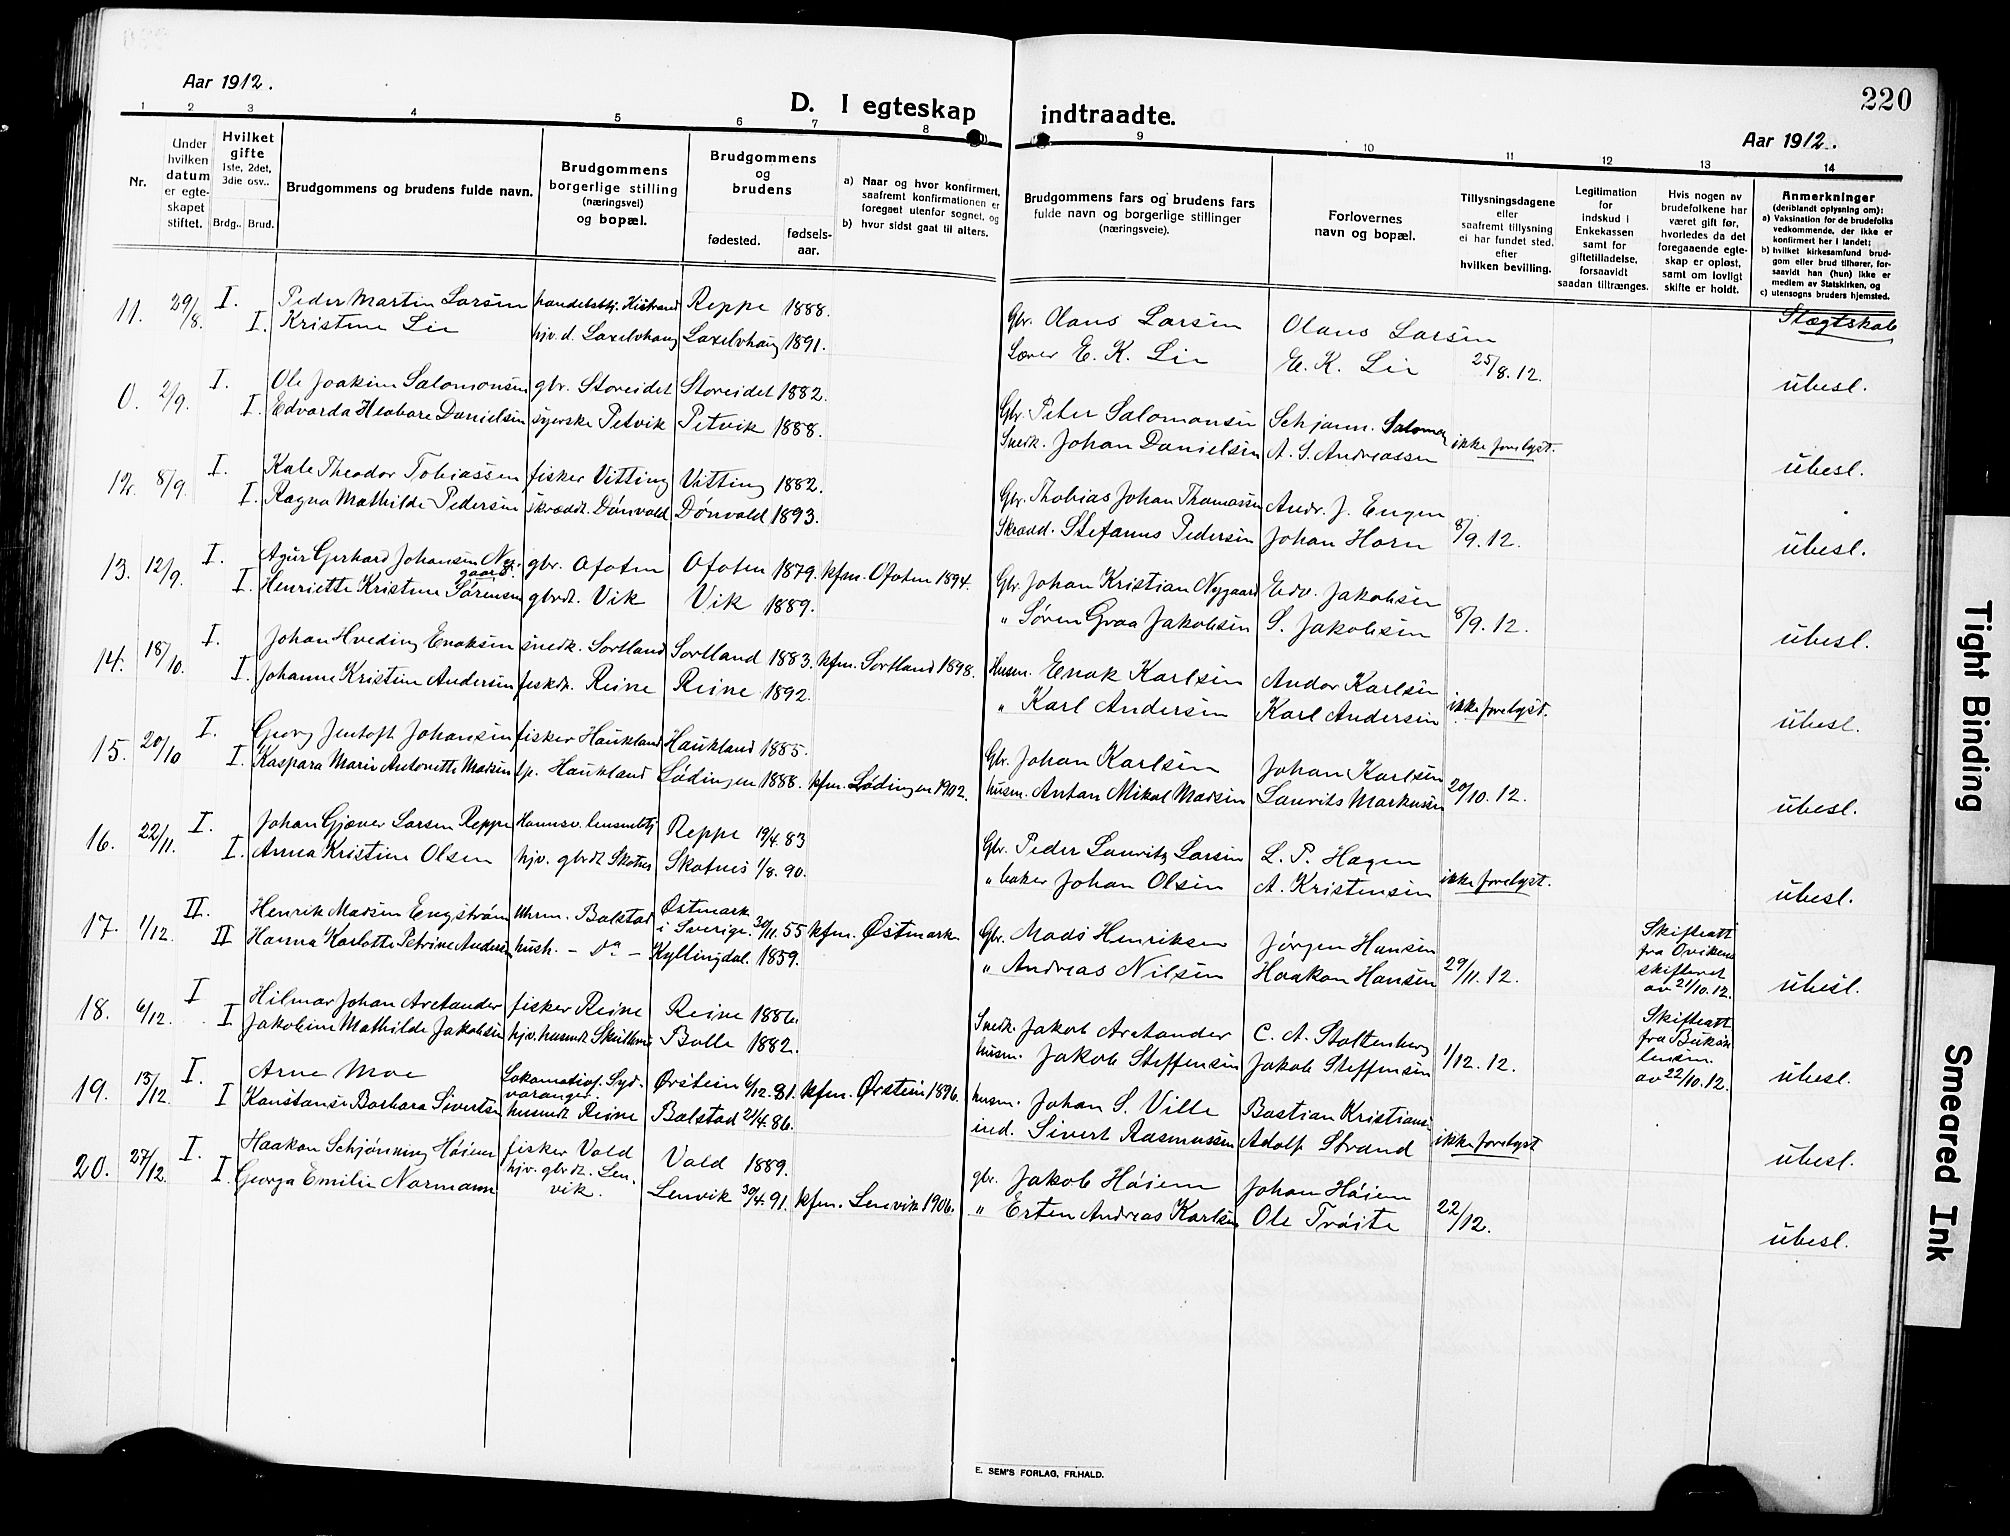 220
Aar 1912.
D. I egteskap indtraadte.
Aar 1912.
1 2 3 4 5 6 7 8 9 10 11 12 13 14
Nr.
Under hvilken datum er egteskapet stiftet.
Hvilket gifte
1ste, 2det, 3die osv..
Brdg.. Brud.
Brudgommens og brudens fulde navn.
Brudgommens borgerlige stilling (næringsvei) og bopæl.
Brudgommens og brudens
fødested. fødselsaar.
a) Naar og hvor konfirmert, saafremt konfirmationen er foregaat utenfor sognet, og
b) hvor sidst gaat til alters.
Brudgommens fars og brudens fars fulde navn og borgerlige stillinger (næringsveie).
Forlovernes navn og bopæl.
Tillysningsdagene eller saafremt tillysning ei har fundet sted. efter hvilken bevilling.
Legitimation for indskud i Enkekassen samt for giftetilladelse, forsaavidt saadan tiltrænges.
Hvis nogen av brudefolkene har været gift før, hvorledes da det foregaaende egteskap er opløst, samt om lovligt skifte er holdt.
Anmerkninger (deriblandt oplysning om):
a) Vaksination for de brudefolks vedkommende, der ikke er konfirmert her i landet;
b) hvilket kirkesamfund brudgom eller brud tilhører, forsaavidt han (hun) ikke er medlem av Statskirken, og
c) utensogns bruders hjemsted.
11. 29/8. I. Peder Martin Larsen handelsbtj. Kistrand Reppe 1888. Gbr. Olaus Larsen Olaus Larsen Slægtskab
I. Kristine Lie hjv. d. Laxelvhaug Laxelvhaug 1891. Lærer E. K. Lie E. K. Lie 25/8. 12. ubesl.
0. 2/9. I. Ole Joakim Salomonsen gbr. Storeidet Storeidet 1882. Gbr. Peter Salomonsen Schjønn. Salomon ikke forelyst.
I. Edvarda Heabare Danielsen syerske Petvik Petvik 1888. Snedk. Johan Danielsen A. S. Andreassen ubesl.
12. 8/9. I. Kale Theodor Tobiassen fisker Vitting Vitting 1882. Gbr. Thobias Johan Thomassen Andr. J. Engen
I. Ragna Mathilde Pedersen skræddt. Dønvold Dønvold 1893. Skrædd. Stefanus Pedersen Johan Horn 8/9. 12. ubesl.
13. 12/9. I. Agur Gerhard Johansen Nygaard. gbr. Ofoten Ofoten 1879. kfm. Ofoten 1894. Gbr. Johan Kristian Nygaard Edv. Jakobsen
I. Henriette Kristine Sørensen gbrdt. Vik Vik 1889. " Søren Graa Jakobsen S. Jakobsen 8/9. 12. ubesl.
14. 18/10. I. Johan Hveding Enoksen snedk. Sortland Sortland 1883. kfm. Sortland 1898. Husm. Enok Karlsen Andor Karlsen ikke forelyst.
I. Johanne Kristine Andersen fiskdt. Reine Reine 1892. " Karl Andersen Karl Andersen ubesl.
15. 20/10 I. Georg Jentoft Johansen fisker Haukland Haukland 1885. Gbr. Johan Karlsen Johan Karlsen
I. Kaspara Marie Antonette Madsen tp. Haukland Lødingen 1888. kfm. Lødingen 1902. husm. Anton Mikal Madsen Laurits Markussen 20/10. 12. ubesl.
16. 22/11. I. Johan Gjæver Larsen Reppe Hamnsv. lensmbtj Reppe 19/4. 83 Gbr. Peder Lauritz Larsen L. P. Hagen ikke forelyst.
I. Anna Kristine Olsen hjv. gbrdt Skotnes Skotnes 1/8. 90. " baker Johan Olsen A. Kristensen ubesl.
17. 1/12. II. Henrik Madsen Engstrøm Uhrm. Balstad Østmark i Sverige. 30/11. 55 kfm. Østmark Gbr. Mads Henriksen Jørgen Hansen Skifteatt fra Ovikens skifteret av 21/10. 12.
II Hanna Karlotte Petrine Andersen hush. - Do - Kyllingdal. 1859. " Andreas Nilsen Haakon Hansen 29/11. 12. ubesl.
18. 6/12. I Hilmar Johan Aretander fisker Reine Reine 1886. Snedk. Jakob Aretander C. A. Stoltenberg Skifteatt fra Buksn. lensm. av 22/10. 12.
I Jakobine Mathilde Jakobsen hjv. husmdt Skulbru Bolle 1882. husm. Jakob Steffensen Jakob Steffensen 1/12. 12. ubesl.
19. 15/12. I. Arne Moe Lokomotivf. Sydvaranger. Ørstein 6/12. 81. kfm. Ørstein 1896. husm. Johan S. Ville Bastian Kristians. ikke forelyst
I Konstanse Barbara Sivertsen husmdt Reine Balstad 21/4. 86. ind. Sivert Rasmussen Adolf Strand ubesl.
20. 27/12. I. Haakon Schjønning Høiem fisker Vold Vold 1889. gbr. Jakob Høiem Johan Høiem
I. Georga Emilie Normann hjv. gbrdt. Lenvik. Lenvik 30/4. 91. kfm. Lenvik 1906. " Erten Andreas Karlsen Ole Trøite 22/12. ubesl.
E. SEM'S FORLAG, FR.HALD.
Tight Binding
Smeared Ink